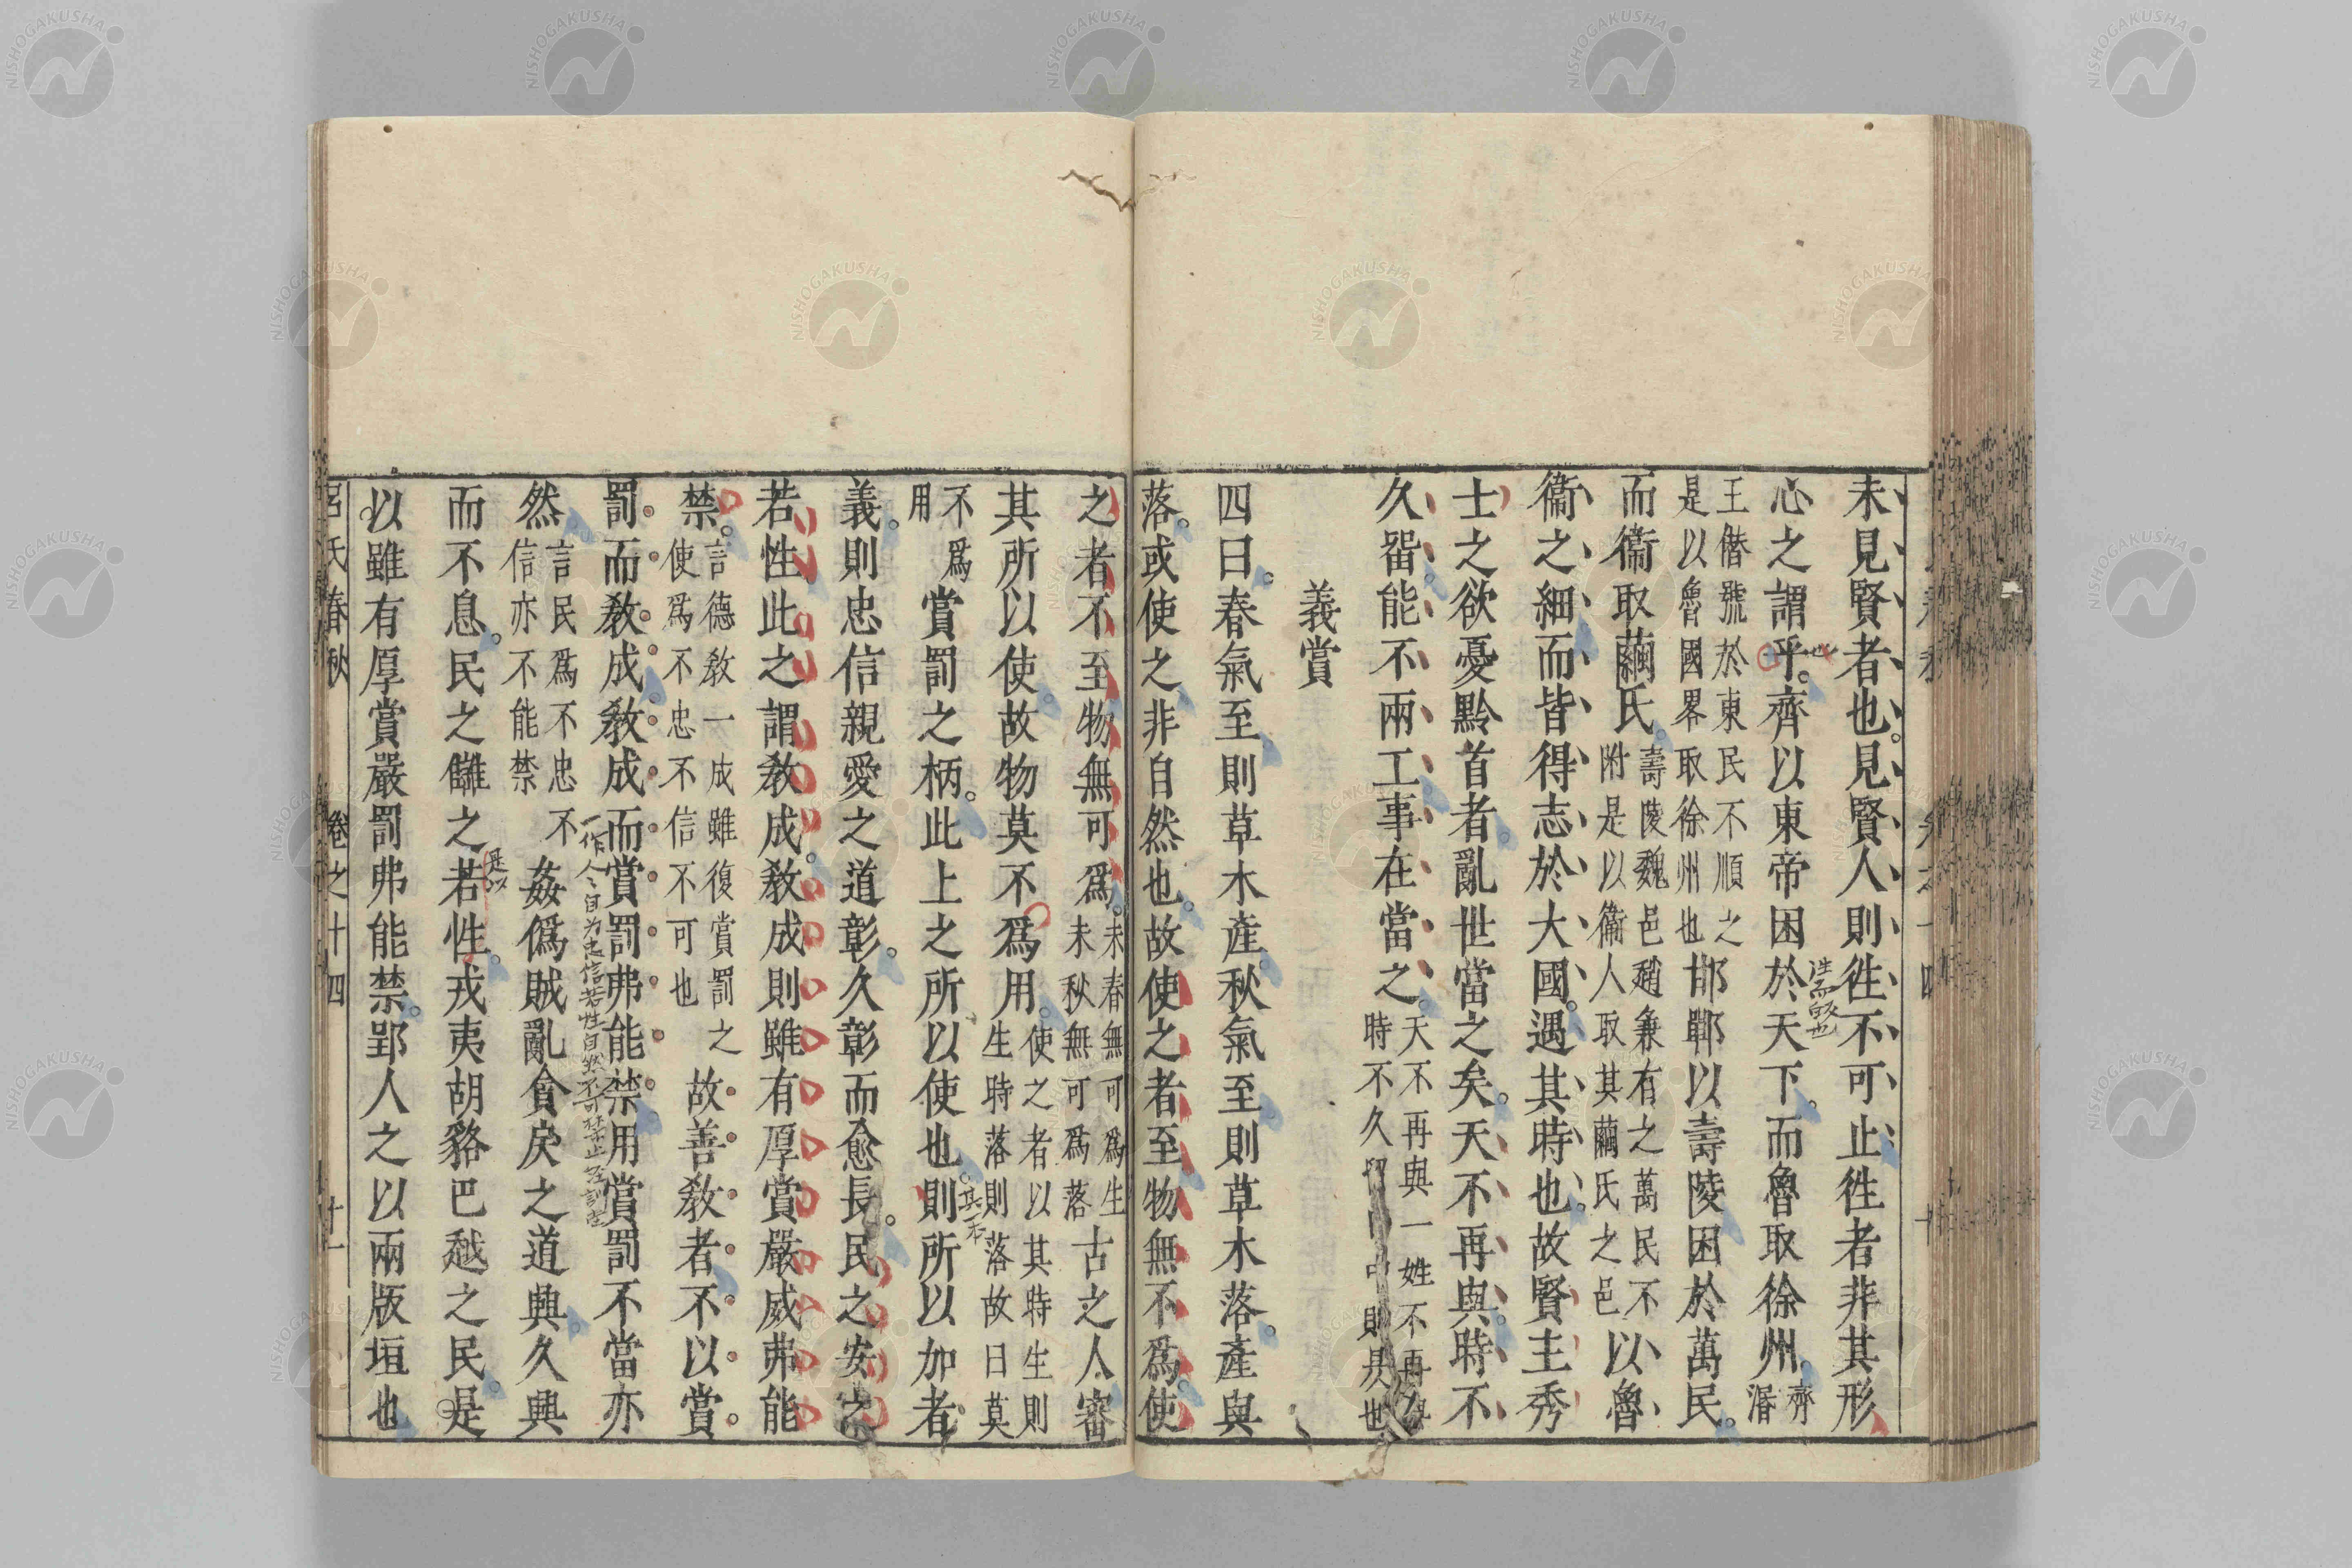 未見賢者也見賢人則徃不可止徃者非其形
心之謂乎齊以東帝困於天下而魯取徐州齊湣
王僭號於東民不順之是以魯國畧取徐州也邯鄲以壽陵困於萬民
而衞取繭氏壽陵魏邑趙兼有之萬民不附是以衞人取其繭氏之邑以魯
衞之細而皆得志於大國遇其時也故賢主秀
士之欲憂黔首者亂世當之矣天不再與時不
久畱能不兩工事在當之天不再與一姓不再時不久則昃也
義賞
四曰春氣至則草木產秋氣至則草木落產與
落或使之非自然也故使之者至物無不爲使
之者不至物無可爲未春無可爲生未秋無可爲落古之人審
其所以使故物莫不爲用使之者以其時生則生時落則落故曰莫
不爲用賞罰之柄此上之所以使也則所以加者
義則忠信親愛之道彰久彰而愈長民之安之
若性此之謂教成教成則雖有厚賞嚴威弗能
禁言德教一成雖復賞罰之使爲不忠不信不可也故善教者不以賞
罰而教成教成而賞罰弗能禁用賞罰不當亦
然言民爲不忠不信亦不能禁姦僞賊亂貪戾之道興久興
而不息民之讎之若性戎夷胡貉巴越之民是
以雖有厚賞嚴罰弗能禁郢人之以兩版垣也
呂氏春秋 卷之十四 十一
其一本
一作人人自为忠信若性自然不可禁止
是以